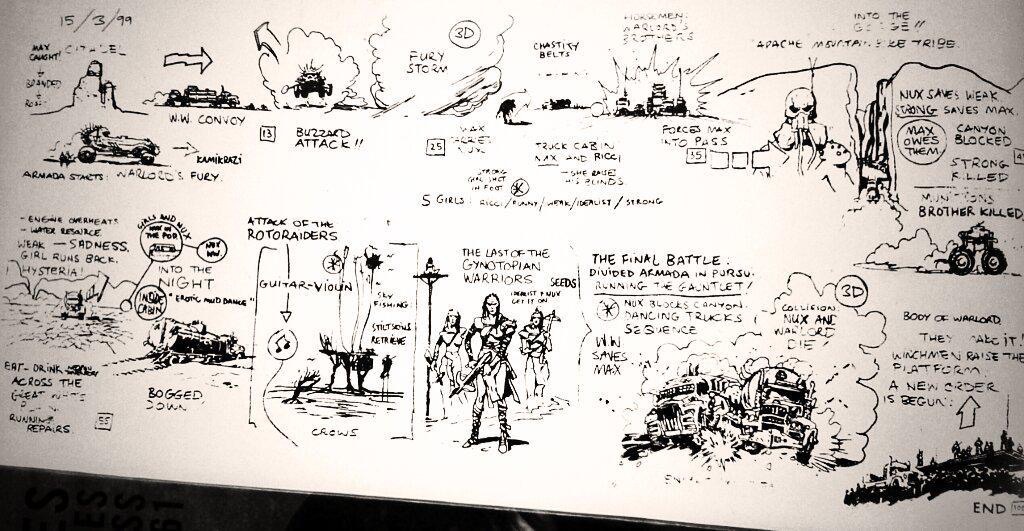 15/3/99
CITADEL
MAX
CAUGHT!
BRANDED
W.W. CONVOY
KAMIKRAZI
ARMADA STARTS: WARLORD'S FURY.
13
BUZZARD
ATTACK!!
FURY
STORM
3D
25
MAX
CHASTITY
BELTS
TRUCK CABIN
MAX AND RICCI
SHE RAISE
HIS BLINDS.
STRONG
IN FOOT
5 GIRLS: RICCI/FUNNY/WEAK/IDEALIST/STRONG
HORSEMEN:
WARLORD'S
BROTHERS
FORCES MAX
INTO PASS
35
INTO THE
GORGE!!
APACHE MOUNTAIN BIKE TRIBE.
NUX SAVES WEAK.
STRONG SAVES MAX.
MAX
OWES
THEM
CANYON
BLOCKED
STRONG
KILLED
MUNITIONS
BROTHER KILLED
- ENGINE OVERHEATS
- WATER RESOURCE.
WEAK — SADNESS.
GIRL RUNS BACK.
HYSTERIA!
GIRLS AND NUX
MAX IN
THE POD
NUX
WW.
INTO THE
NIGHT
INSIDE
CABIN
"EROTIC MUD DANCE"
EAT-DRINK
ACROSS THE
GREAT WHITE
RUNNING
REPAIRS.
55
BOGGED
DOWN
ATTACK OF THE
ROTORAIDERS
GUITAR-VIOLIN
SKY
FISHING
RETRIEVE
CROWS
THE LAST OF THE
GYNOTOPIAN
WARRIORS
SEEDS
IDEALIST & NUX
GET IT ON
THE FINAL BATTLE:
DIVIDED ARMADA IN PURSU
RUNNING THE GAUNTLET!
NUX BLOCKS CANYON.
DANCING TRUCKS
SEQUENCE
W.W
SAVES
MAX
3D
COLLISION:
NUX AND
WARLORD
DIE
BODY OF WARLORD.
THEY MAKE IT!
WINCHMEN RAISE THE
PLATFORM.
A NEW ORDER
IS BEGUN.
END